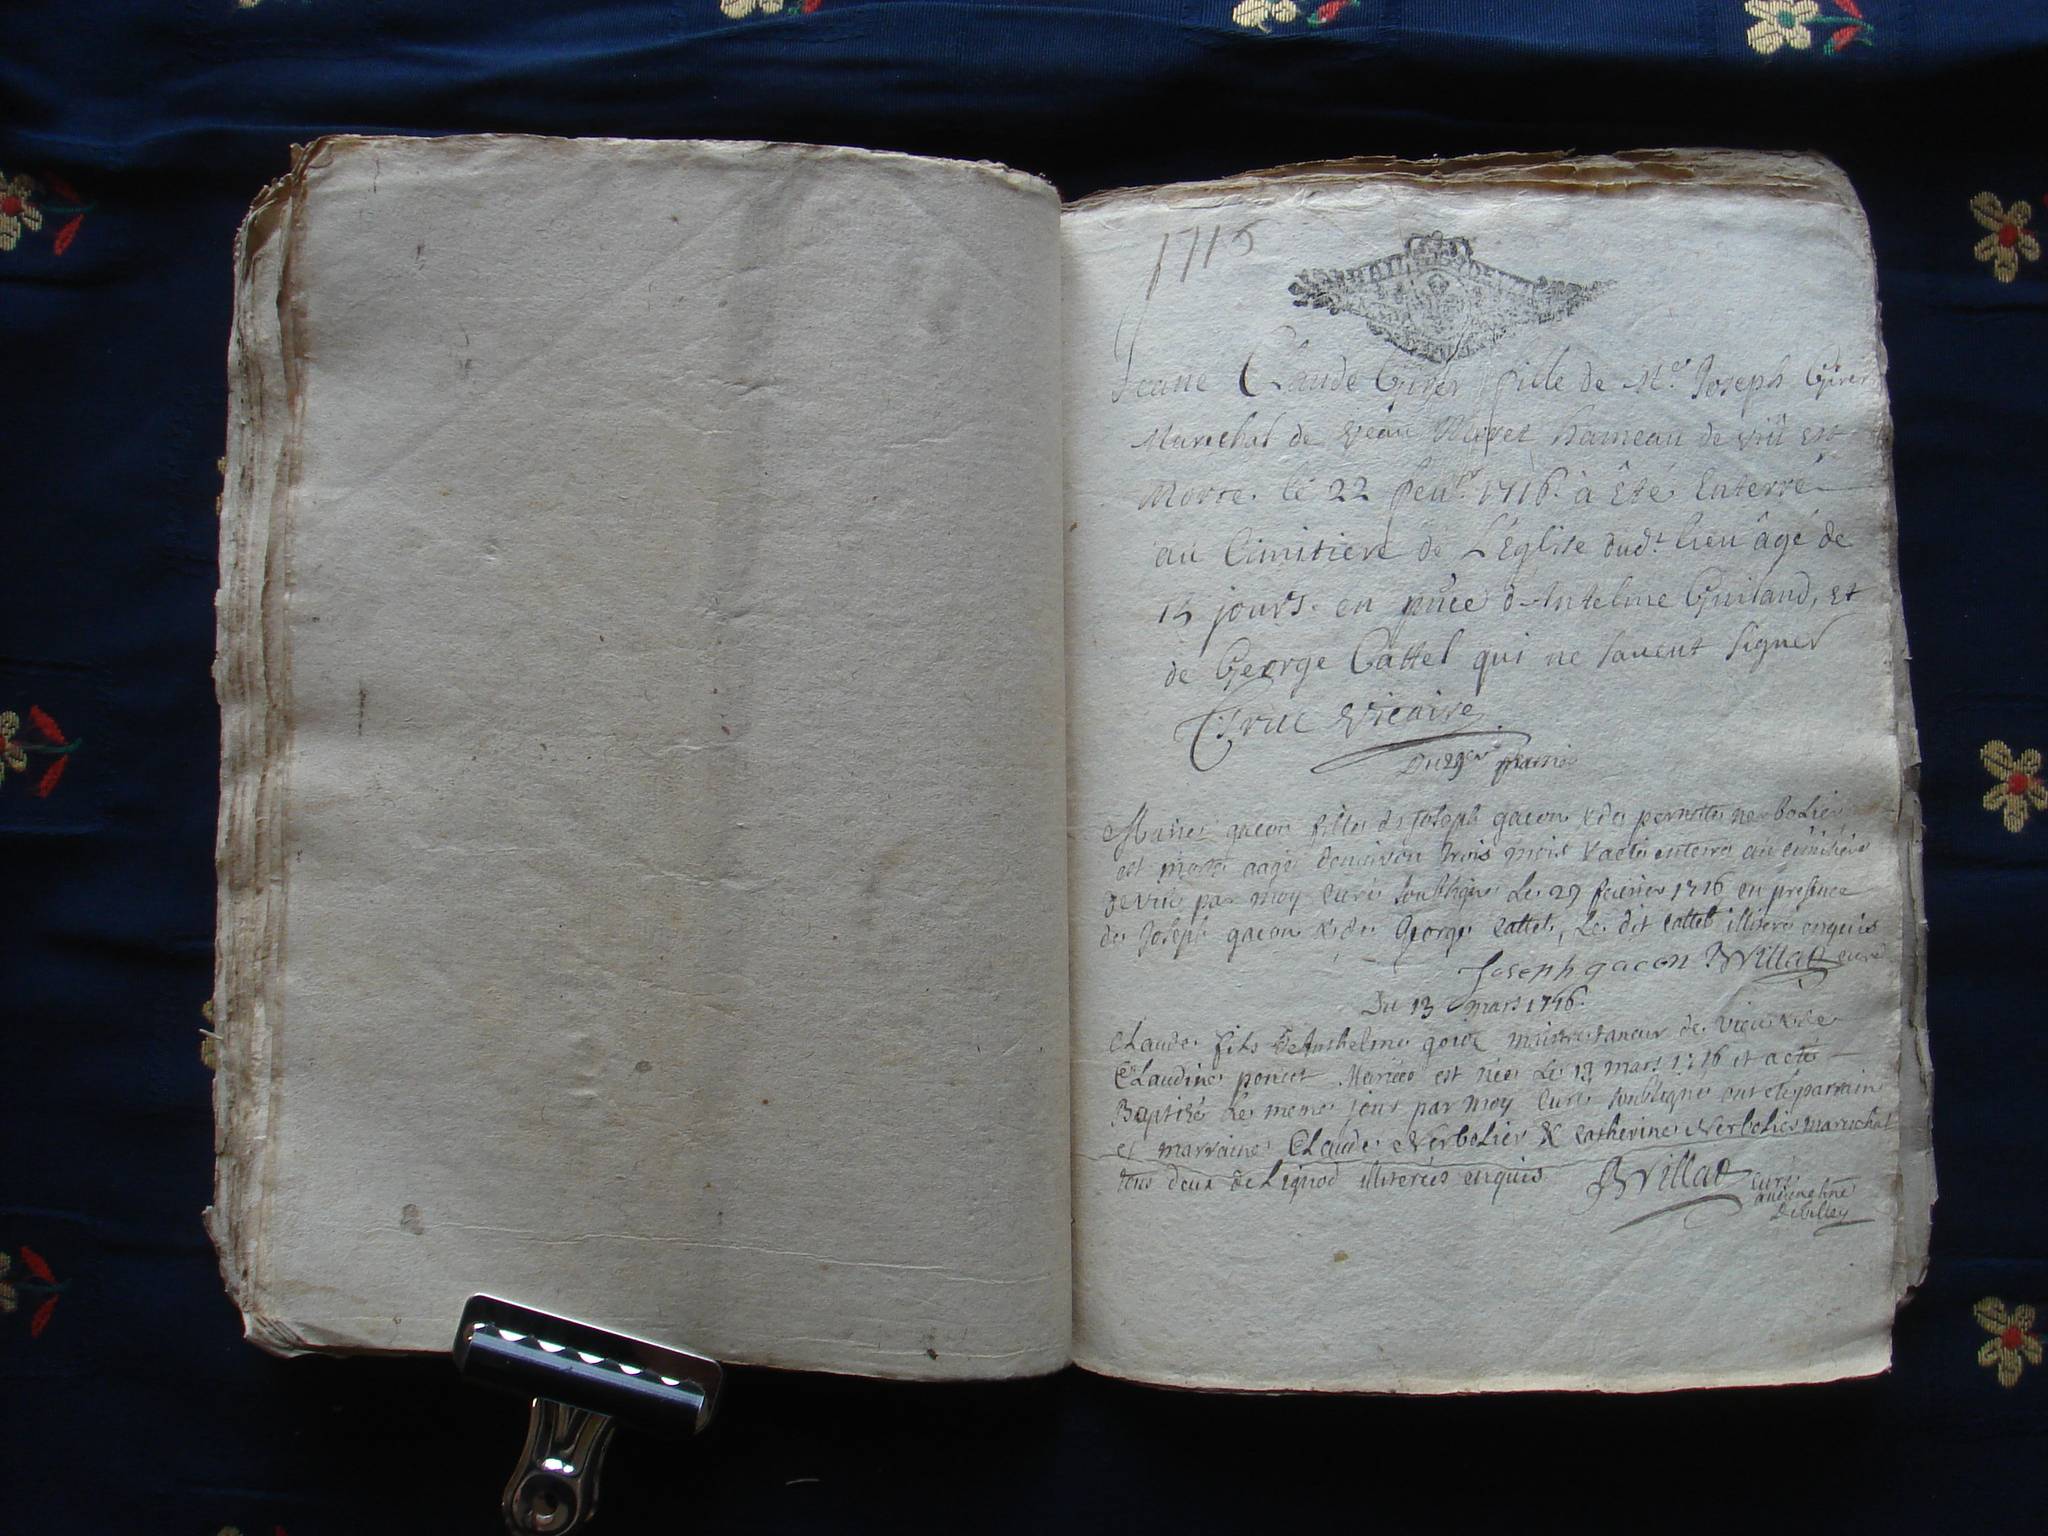 1715
Jeane Claude Girer fille de Mre Joseph Girer
Marechal de Meret hameau de viû est
Morte le 22 feur 1716 à êté Enterré
au Cimitiere de L'Eglise dudt lieu âgé de
13 jours en pnce d'Antelme Guiland, et
de George Cattel qui ne savent signer
vicaire
Du 29er
gacon fille de Joseph gacon & de pernette verbolier
est morte aagé denviron trois mois & a eté enterre au cimitiere
de viû par moy curé soubsigne Le 29 feurier 1716 en presence
de Joseph gacon & de George Cattel, Le dit Cattel illiteré enquis
Joseph gacon BVillat curé
Du 13 mars 1716
Claude fils de Anthelme goide maistre taneur de vieu & de
Claudine poncet Mariés est née Le 13 mars 1716 et a eté
Baptisé Le meme jour par moy Curé soubsigne ont eté parrain
et marraine Claude Verbolier & Catherine Verbolier
tous deux de Lignod illiterées enquis BVillat curé